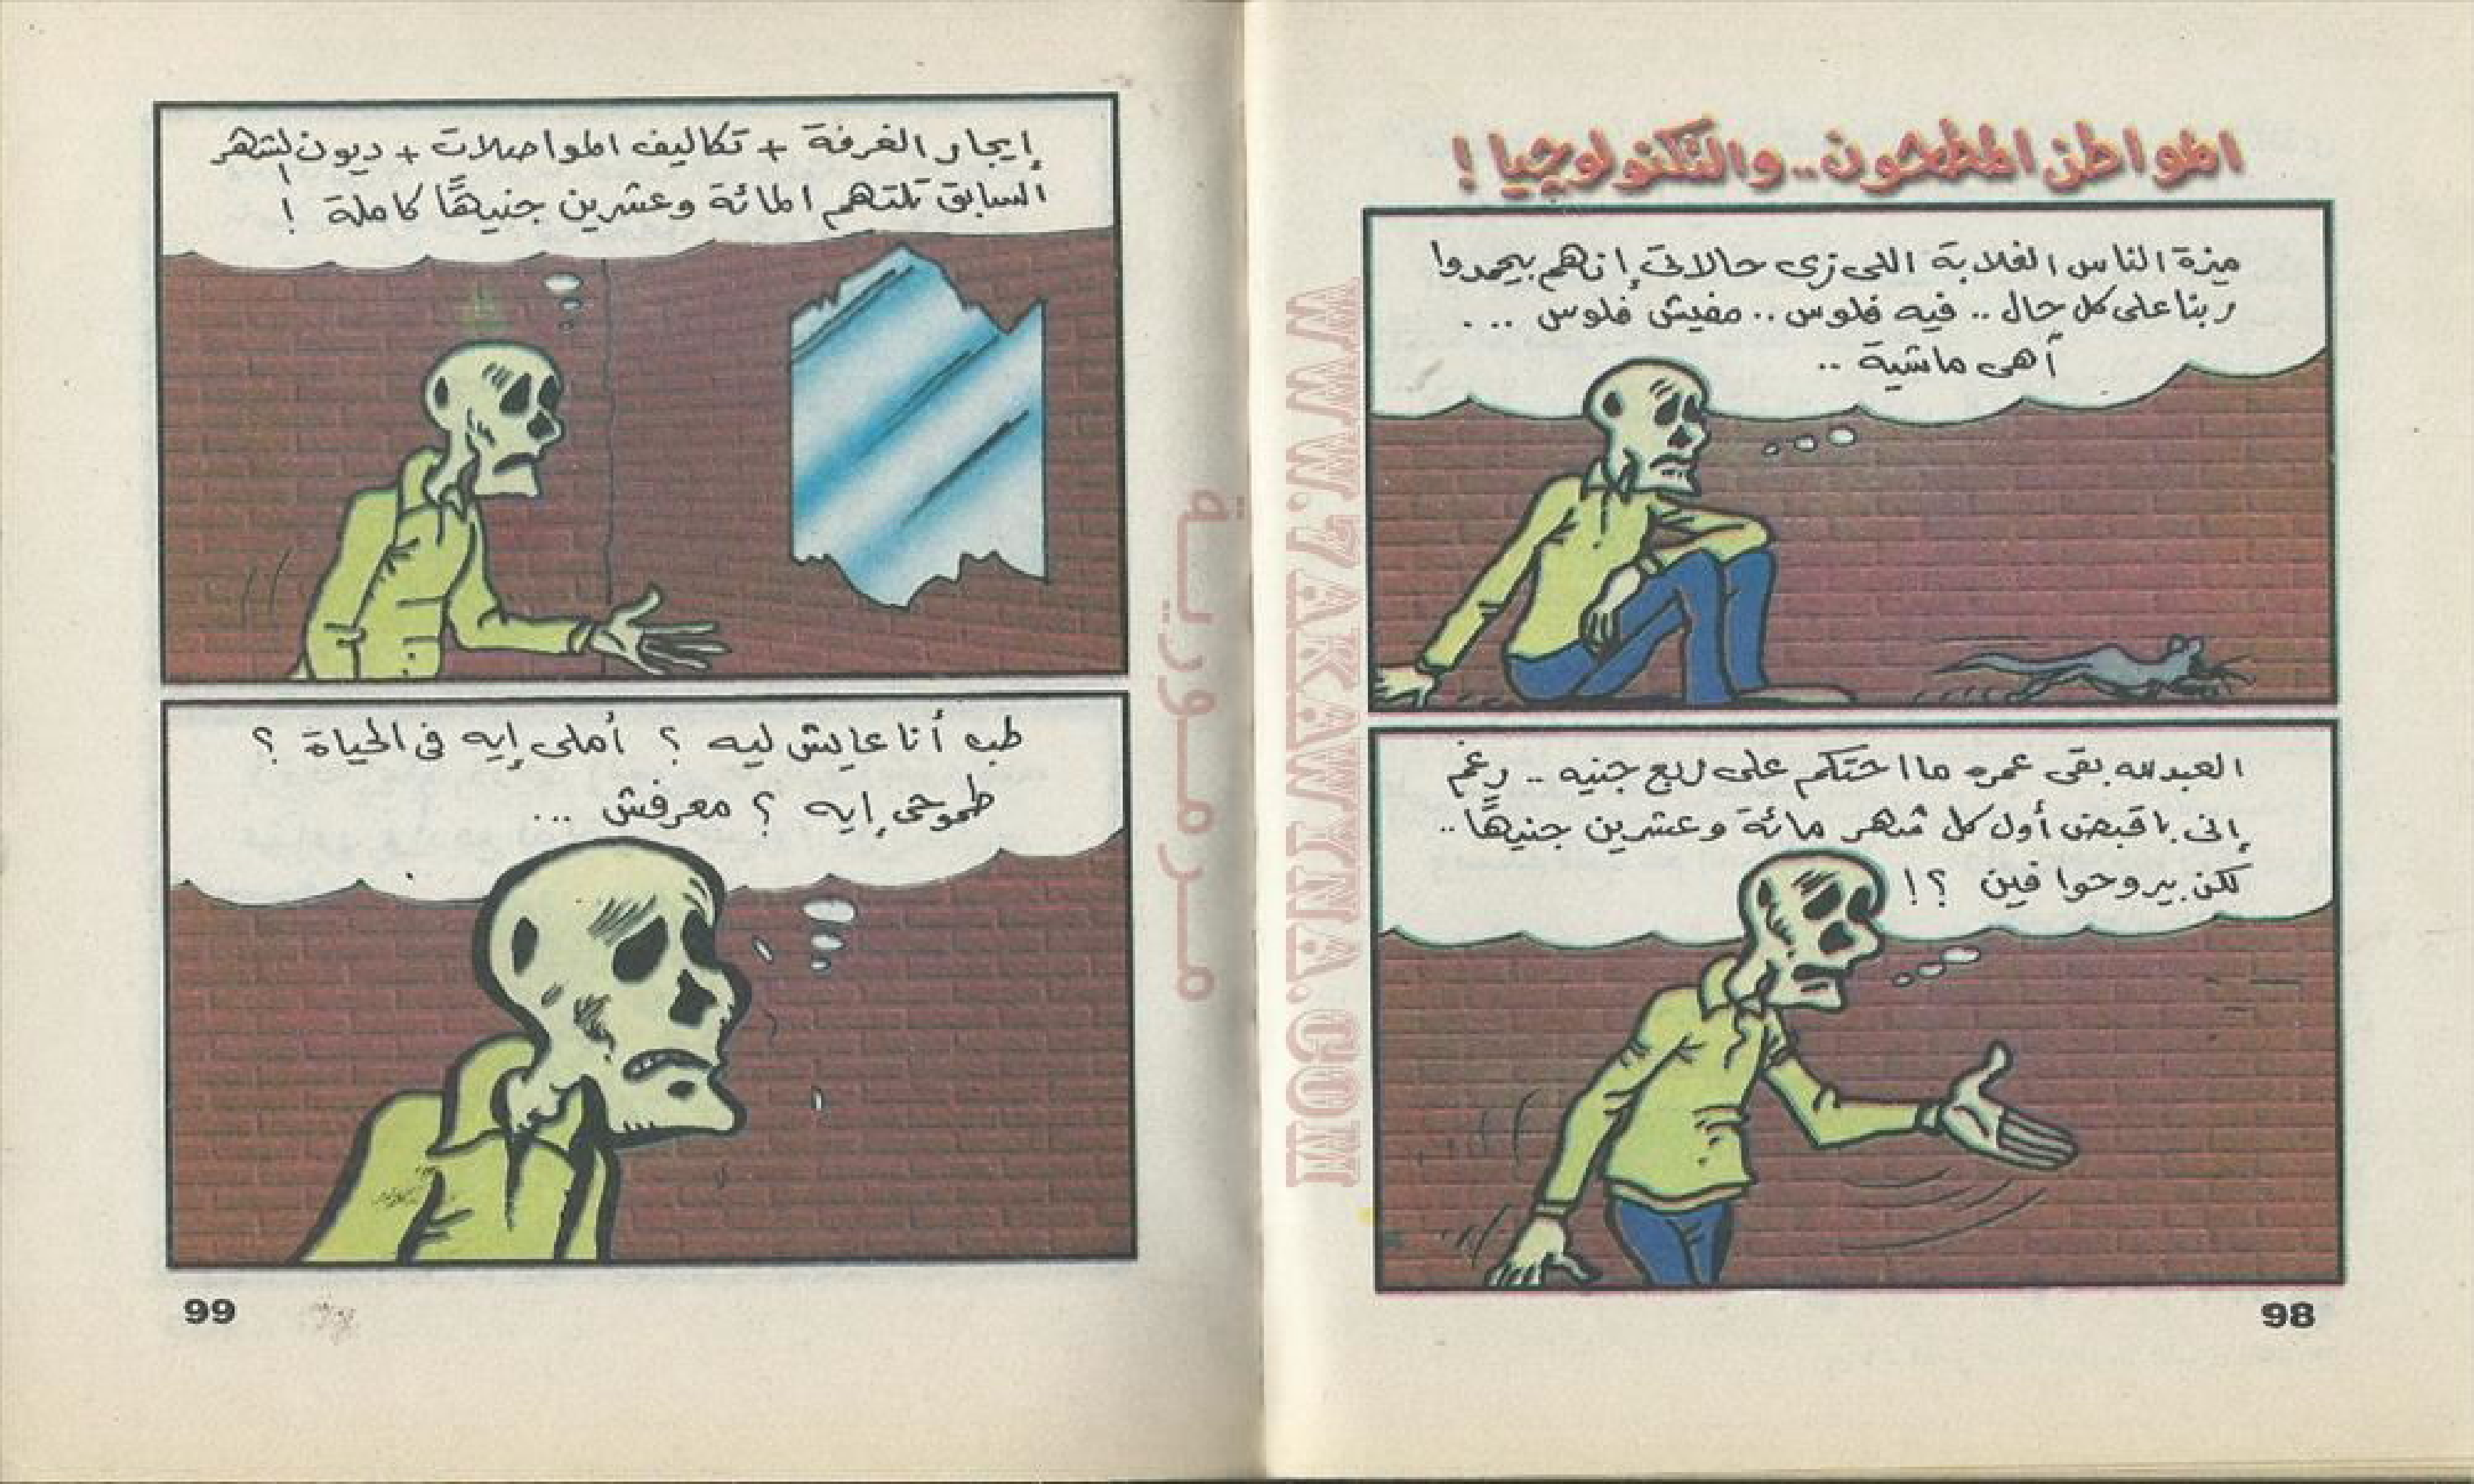 المواطن المطحون.. والتكنولوجيا !
ميزة الناس الغلابة اللى زى حالاتى إنهم بيحمدوا
ربنا على كل حال .. فيه فلوس .. مفيش فلوس ...
أهى ماشية ..
العبد لله بقى عمره ما احتكم على ربع جنيه .. رغم
إنى باقبض أول كل شهر مائة وعشرين جنيهًا ..
لكن بيروحوا فين ؟!
98
إيجار الغرفة + تكاليف المواصلات + ديون الشهر
السابق تلتهم المائة وعشرين جنيهًا كاملة !
طب أنا عايش ليه ؟ أملى إيه فى الحياة ؟
طموحى إيه ؟ معرفش ...
99
مرمورية
WWW.7AKAWYNA.COM